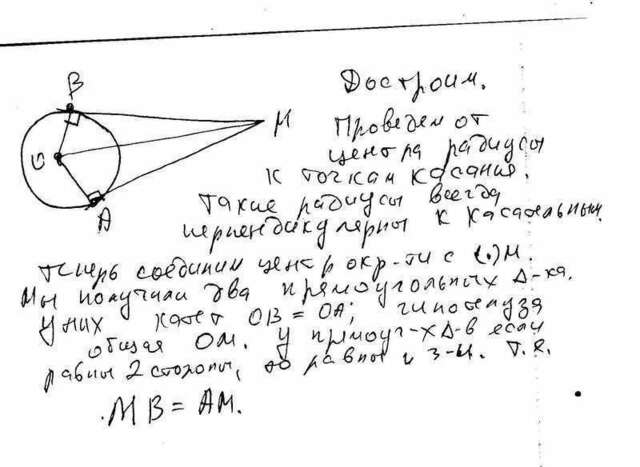 В
Достроим.
М
Проведем от
центра радиусы
О
к точкам касания.
А
Такие радиусы всегда
перпендикулярны к касательным.
Теперь соединим центр окр-ти с (.) М.
Мы получили два прямоугольных Δ-ка.
У них катет ОВ = ОА; гипотенуза
общая ОМ. У прямоуг-х Δ-в если
равны 2 стороны, то равны и 3-и. Т.е.
МВ = АМ.